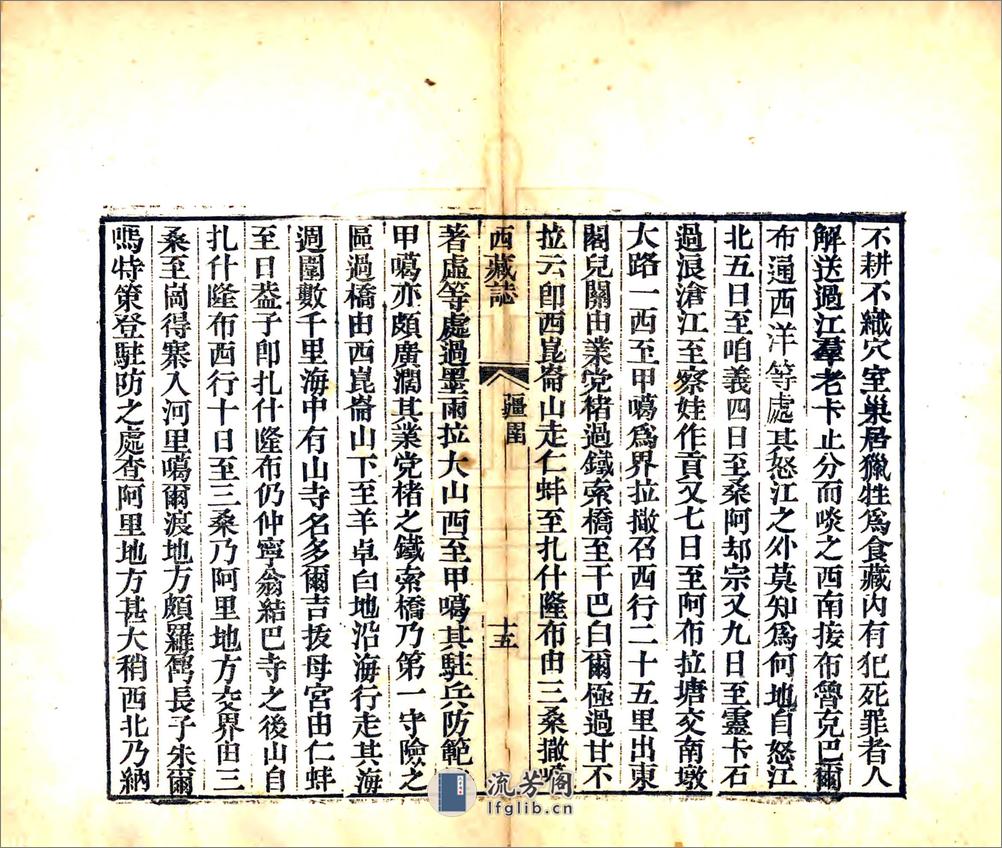 不耕不織穴室巢居獵牲爲食藏內有犯死罪者人
解送過江羣老卡止分而啖之西南接布魯克巴爾
布通西洋等處其怒江之外莫知爲何地自怒江
北五日至咱義四日至桑阿却宗又九日至靈卡石
過浪滄江至察娃作貢又七日至阿布拉塘交南墩
大路一西至甲噶爲界拉撒召西行二十五里出東
閣兒關由業党楮過鐵索橋至干巴白爾極過甘不
拉云卽西崑崙山走仁蚌至扎什隆布由三桑撒
西藏誌 疆圉 十五
著虛等處過墨雨拉大山西至甲噶其駐兵防範
甲噶亦頗廣濶其業党楮之鐵索橋乃第一守險之
區過橋由西崑崙山下至羊卓白地沿海行走其海
週圍數千里海中有山寺名多爾吉拔母宮由仁蚌
至日葢子卽扎什隆布仍仲寧翁結巴寺之後山自
扎什隆布西行十日至三桑乃阿里地方交界由三
桑至崗得寨入河里噶爾渡地方頗羅鼐長子朱爾
嗎特策登駐防之處查阿里地方甚大稍西北乃納
流芳閣
lfglib.cn